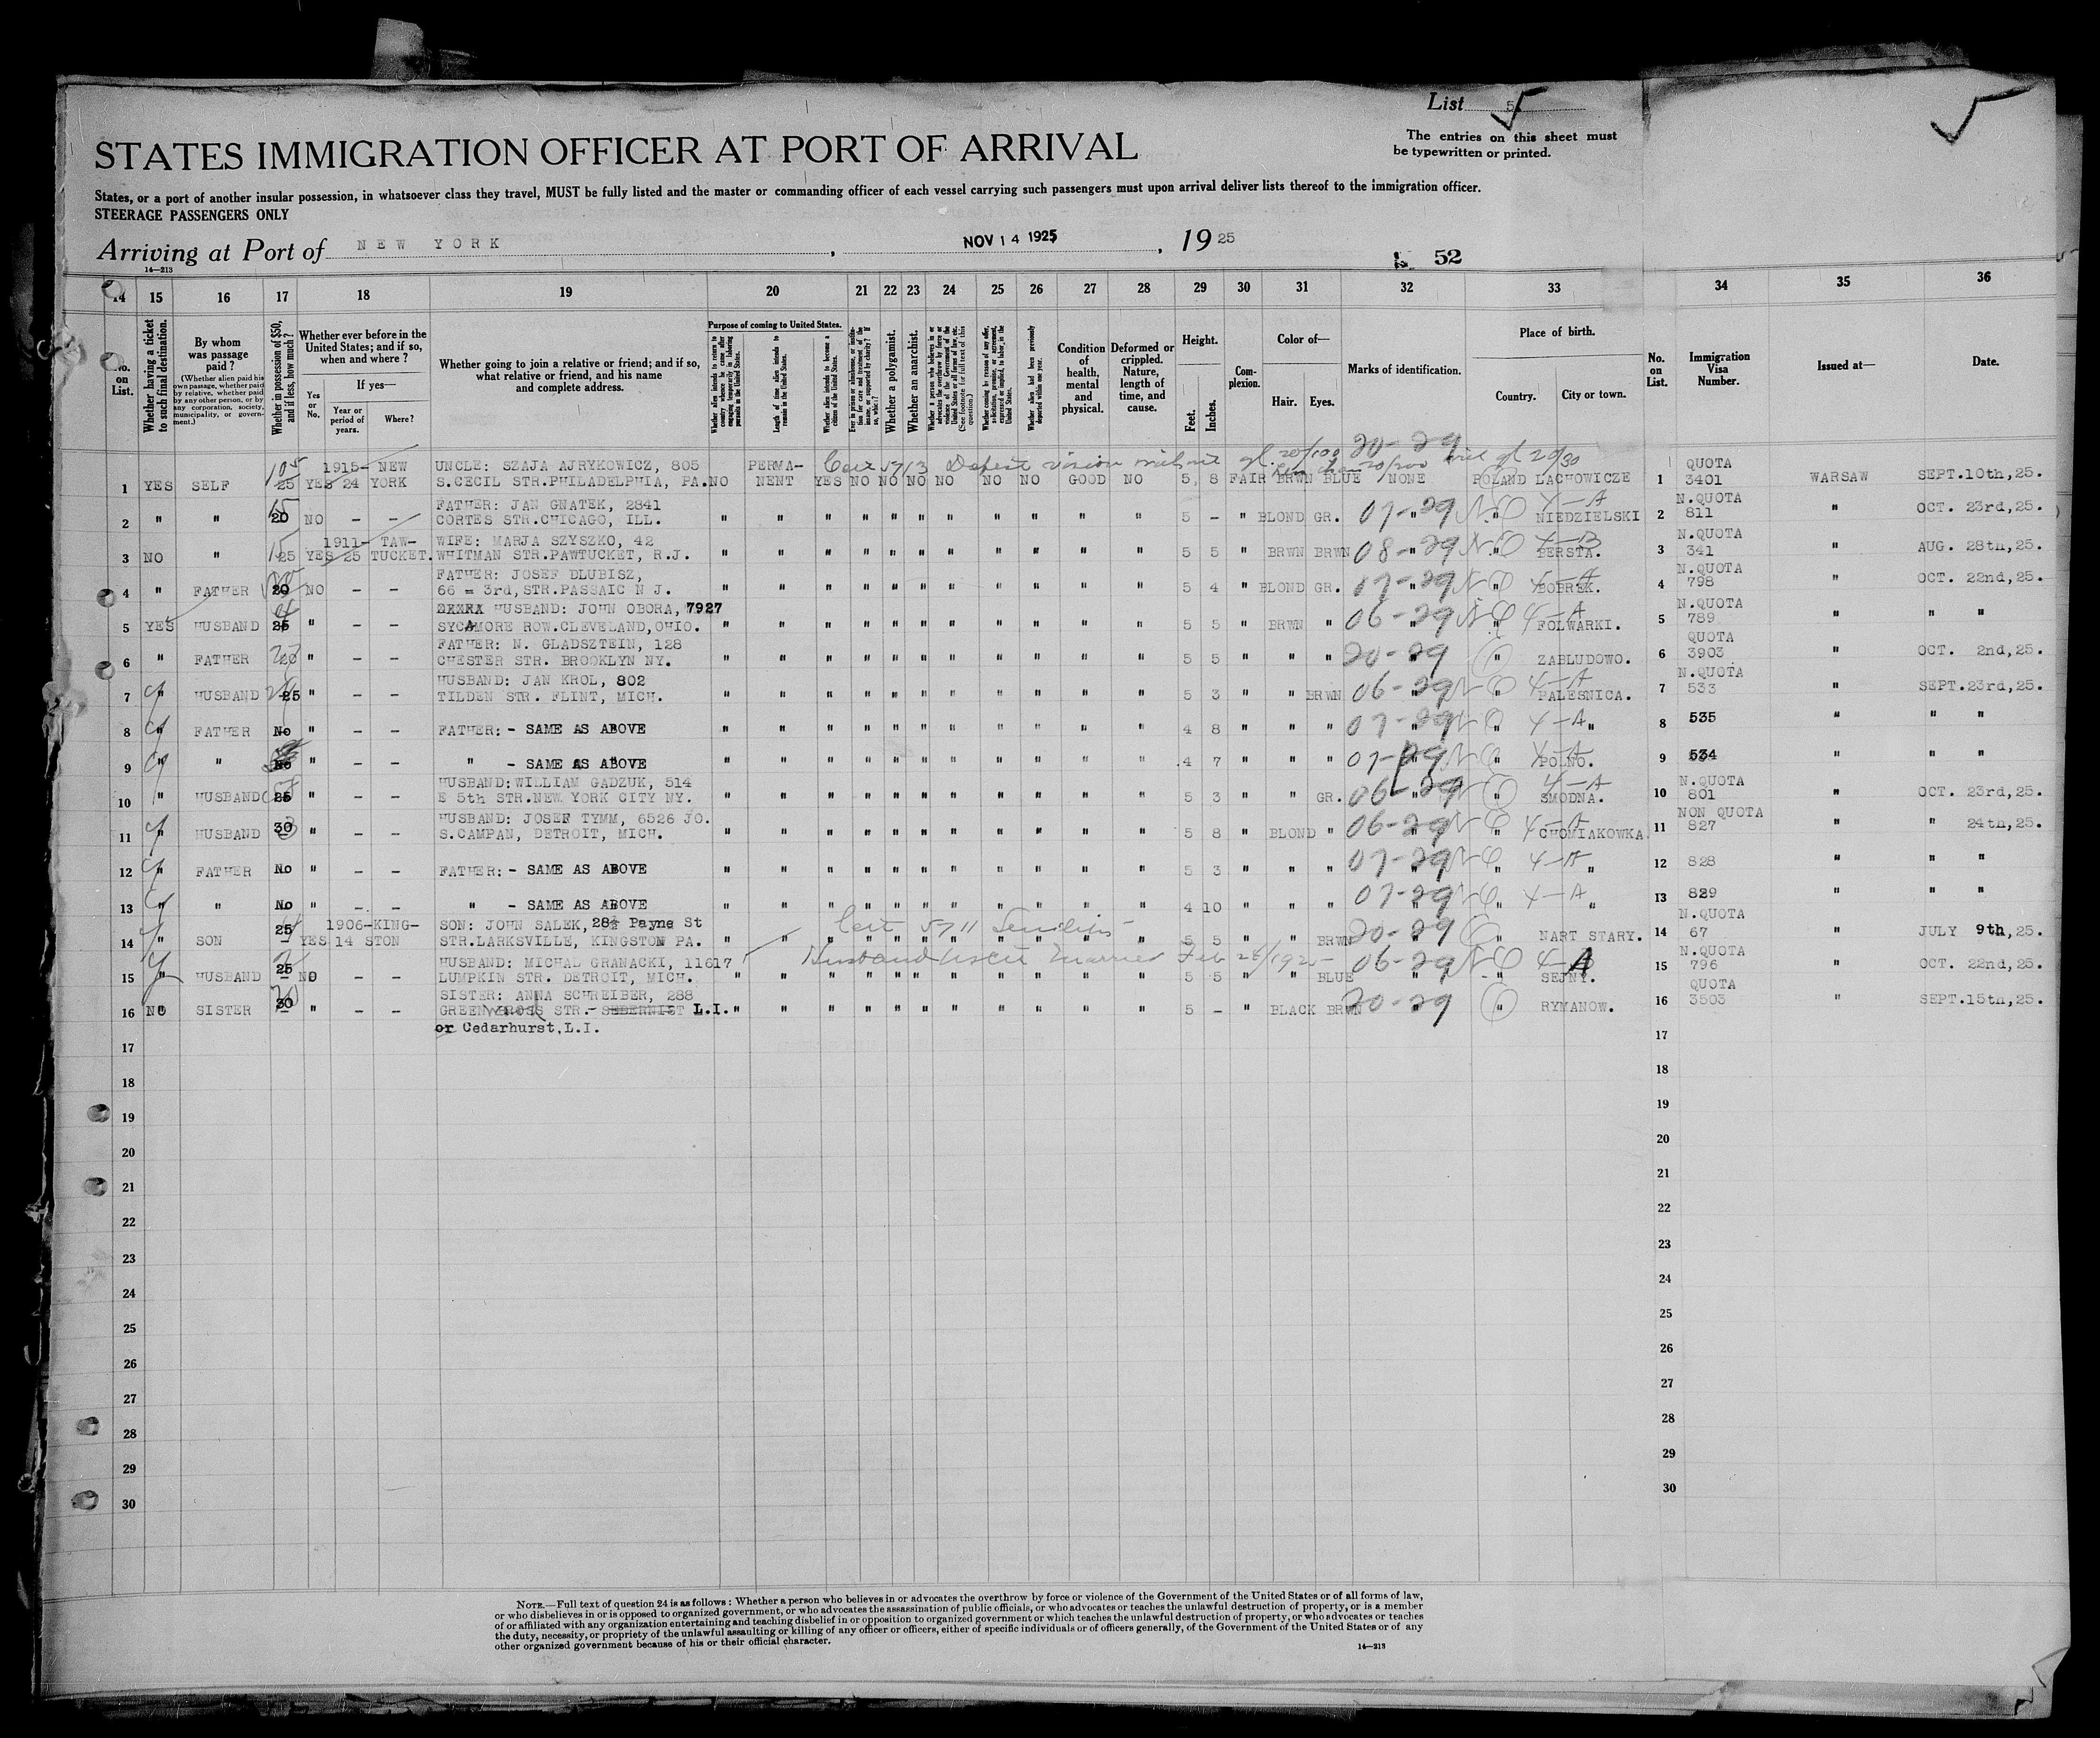 List 5
The entries on this sheet must
be typewritten or printed.
STATES IMMIGRATION OFFICER AT PORT OF ARRIVAL
States, or a port of another insular possession, in whatsoever class they travel, MUST be fully listed and the master or commanding officer of each vessel carrying such passengers must upon arrival deliver lists thereof to the immigration officer.
STEERAGE PASSENGERS ONLY
Arriving at Port of NEW YORK, NOV 14 1925, 1925
52
14—213
14 15 16 17 18 19 20 21 22 23 24 25 26 27 28 29 30 31 32 33 34 35 36
No. on List.
Whether having a ticket to such final destination.
By whom was passage paid?
(Whether alien paid his own passage, whether paid by relative, whether paid by any other person, or by any corporation, society, municipality, or government.)
Whether in possession of $50, and if less, how much?
Whether ever before in the United States; and if so, when and where?
Yes or No.
If yes—
Year or period of years.
Where?
Whether going to join a relative or friend; and if so, what relative or friend, and his name and complete address.
Purpose of coming to United States.
Whether alien intends to return to country whence he came after engaging temporarily in laboring pursuits in the United States.
Length of time alien intends to remain in the United States.
Whether alien intends to become a citizen of the United States.
Whether a polygamist.
Whether an anarchist.
Condition of health, mental and physical.
Deformed or crippled. Nature, length of time, and cause.
Height.
Feet.
Inches.
Complexion.
Color of—
Hair.
Eyes.
Marks of identification.
Place of birth.
Country.
City or town.
No. on List.
Immigration Visa Number.
Issued at—
Date.
20-29
1915- NEW UNCLE: SZAJA AJRYKOWICZ, 805 PERMA- QUOTA
1 YES SELF 25 YES 24 YORK S.CECIL STR.PHILADELPHIA, PA. NO NENT YES NO NO NO NO NO NO GOOD NO 5 8 FAIR BRWN BLUE NONE POLAND LACHOWICZE 1 3401 WARSAW SEPT.10th,25.
FATHER: JAN GNATEK, 2841 N.QUOTA
2 " " 20 NO - - CORTES STR.CHICAGO, ILL. " " " " " " " " " " " 5 - " BLOND GR. 07-29 " NIEDZIELSKI 2 811 " OCT. 23rd,25.
1911- TAW- WIFE: MARJA SZYSZKO, 42 N.QUOTA
3 NO " 25 YES 25 TUCKET. WHITMAN STR.PAWTUCKET, R.J. " " " " " " " " " " " 5 5 " BRWN BRWN 08-29 " BERSTA. 3 341 " AUG. 28th,25.
FATHER: JOSEF DLUBISZ, N.QUOTA
4 " FATHER 20 NO - - 66 = 3rd,STR.PASSAIC N J. " " " " " " " " " " " 5 4 " BLOND GR. 07-29 " BOBREK. 4 798 " OCT. 22nd,25.
HUSBAND: JOHN OBORA, 7927 N.QUOTA
5 YES HUSBAND 25 " - - SYCAMORE ROW.CLEVELAND,OHIO. " " " " " " " " " " " 5 5 " BRWN " 06-29 " 4-A FOLWARKI. 5 789 " " "
FATHER: N. GLADSZTEIN, 128 QUOTA
6 " FATHER " - - CHESTER STR. BROOKLYN NY. " " " " " " " " " " " 5 5 " " " 20-29 " ZABLUDOWO. 6 3903 " OCT. 2nd,25.
HUSBAND: JAN KROL, 802 N.QUOTA
7 " HUSBAND 25 " - - TILDEN STR. FLINT, MICH. " " " " " " " " " " " 5 3 " " BRWN 06-29 " 4-A PALESNICA. 7 533 " SEPT.23rd,25.
8 " FATHER No " - - FATHER: - SAME AS ABOVE " " " " " " " " " " " 4 8 " " " 07-29 " 4-A " 8 535 " " "
9 " " No " - - " - SAME AS ABOVE " " " " " " " " " " " 4 7 " " " 07-29 " POLNO. 9 534 " " "
HUSBAND:WILLIAM GADZUK, 514 N.QUOTA
10 " HUSBAND 25 " - - E 5th STR.NEW YORK CITY NY. " " " " " " " " " " " 5 3 " " GR. 06-29 " 4-A SMODNA. 10 801 " OCT. 23rd,25.
HUSBAND: JOSEF TYMM, 6526 JO. NON QUOTA
11 " HUSBAND 30 " - - S.CAMPAN, DETROIT, MICH. " " " " " " " " " " " 5 8 " BLOND " 06-29 " 4-A CHOMIAKOWKA. 11 827 " " 24th,25.
12 " FATHER No " - - FATHER: - SAME AS ABOVE " " " " " " " " " " " 5 3 " " " 07-29 " 4-A " 12 828 " " "
13 " " No " - - " - SAME AS ABOVE " " " " " " " " " " " 4 10 " " " 07-29 " 4-A " 13 829 " " "
1906- KING- SON: JOHN SALEK, 28½ Payne St N.QUOTA
14 " SON 25 YES 14 STON STR.LARKSVILLE, KINGSTON PA. " " " " " " " " " " " 5 5 " " BRWN 20-29 " NART STARY. 14 67 " JULY 9th,25.
Husband Ascit Married Feb 1925
HUSBAND: MICHAL GRANACKI, 11617 N.QUOTA
15 " HUSBAND 25 NO - - LUMPKIN STR. DETROIT, MICH. " " " " " " " " " " " 5 5 " " BLUE 06-29 " 4-A SEJNY. 15 796 " OCT. 22nd,25.
SISTER: ANNA SCHREIBER, 288 QUOTA
16 NO SISTER 30 " - - GREEN STR.- L.I. " " " " " " " " " " " 5 - " BLACK BRWN 20-29 " RYMANOW. 16 3503 " SEPT.15th,25.
or Cedarhurst,L.I.
17 17
18 18
19 19
20 20
21 21
22 22
23 23
24 24
25 25
26 26
27 27
28 28
29 29
30 30
NOTE.—Full text of question 24 is as follows: Whether a person who believes in or advocates the overthrow by force or violence of the Government of the United States or of all forms of law,
or who disbelieves in or is opposed to organized government, or who advocates the assassination of public officials, or who advocates or teaches the unlawful destruction of property, or is a member
of or affiliated with any organization entertaining and teaching disbelief in or opposition to organized government or which teaches the unlawful destruction of property, or who advocates or teaches
the duty, necessity, or propriety of the unlawful assaulting or killing of any officer or officers, either of specific individuals or of officers generally, of the Government of the United States or of any
other organized government because of his or their official character.
14—213